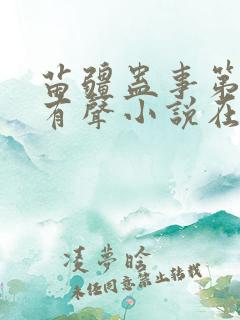 苗疆蛊事第
有聲小說在
凌夢晗
未经同意禁止转载